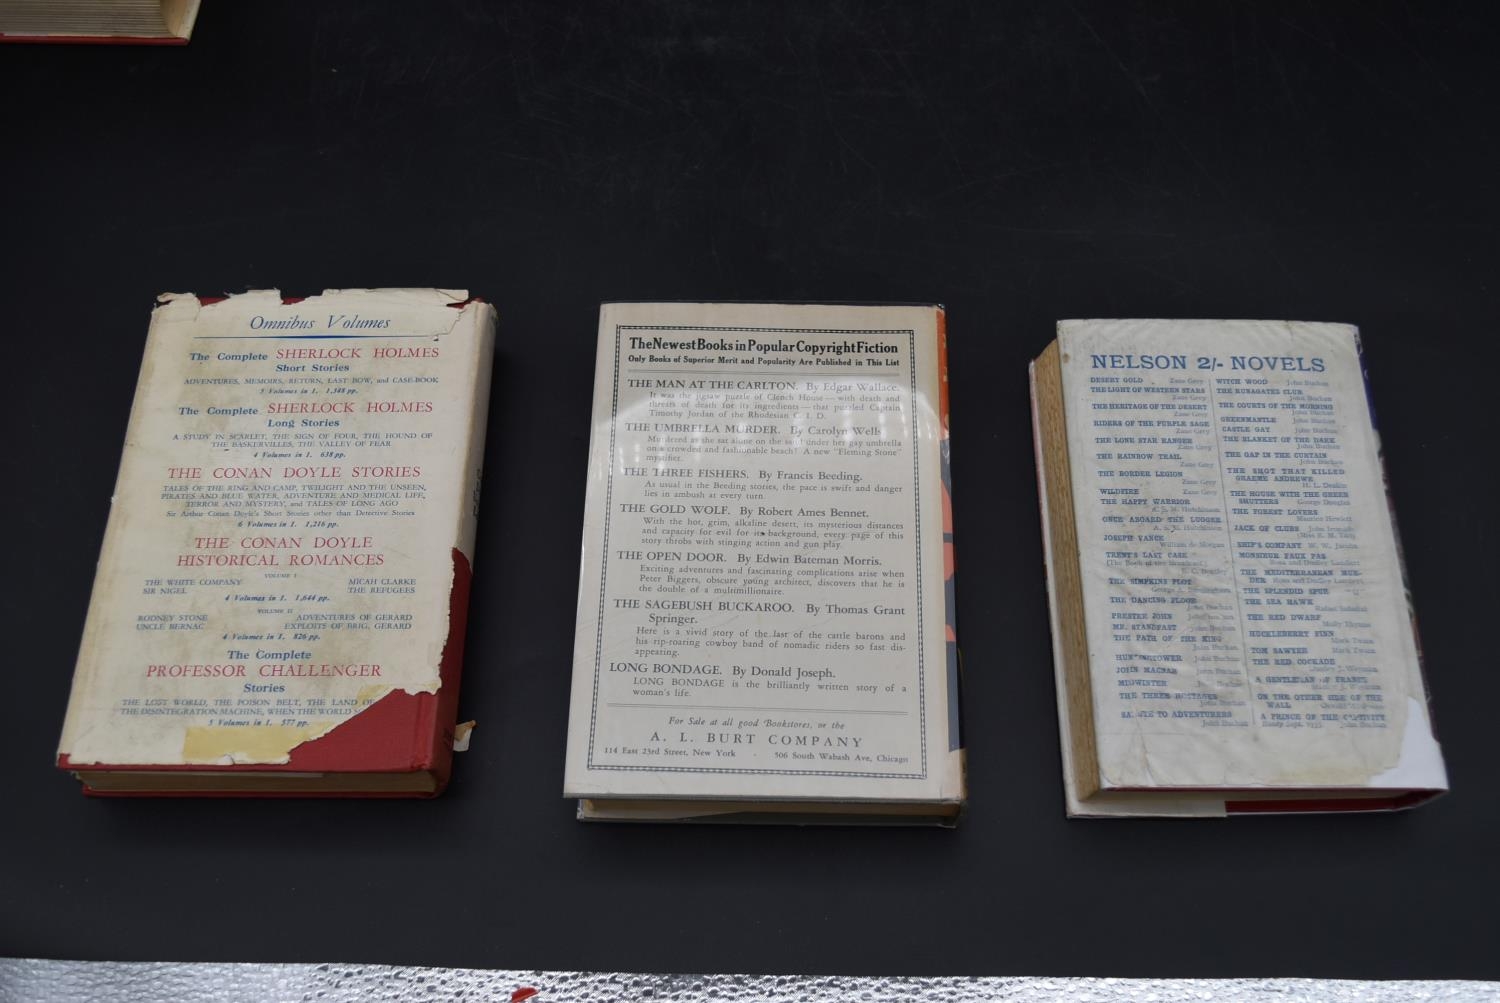 Omnibus Volumes
The Complete SHERLOCK HOLMES
Short Stories
ADVENTURES, MEMOIRS, RETURN, LAST BOW, and CASE-BOOK
5 Volumes in 1. 1,348 pp.
The Complete SHERLOCK HOLMES
Long Stories
A STUDY IN SCARLET, THE SIGN OF FOUR, THE HOUND OF
THE BASKERVILLES, THE VALLEY OF FEAR
4 Volumes in 1. 638 pp.
THE CONAN DOYLE STORIES
TALES OF THE RING AND CAMP, TWILIGHT AND THE UNSEEN,
PIRATES AND BLUE WATER, ADVENTURE AND MEDICAL LIFE,
TERROR AND MYSTERY, and TALES OF LONG AGO
Sir Arthur Conan Doyle's Short Stories other than Detective Stories
6 Volumes in 1. 1,216 pp.
THE CONAN DOYLE
HISTORICAL ROMANCES
VOLUME I
THE WHITE COMPANY MICAH CLARKE
SIR NIGEL THE REFUGEES
4 Volumes in 1. 1,644 pp.
VOLUME II
RODNEY STONE ADVENTURES OF GERARD
UNCLE BERNAC EXPLOITS OF BRIG. GERARD
4 Volumes in 1. 826 pp.
The Complete
PROFESSOR CHALLENGER
Stories
THE LOST WORLD, THE POISON BELT, THE LAND OF
THE DISINTEGRATION MACHINE, WHEN THE WORLD
5 Volumes in 1. 577 pp.
The Newest Books in Popular Copyright Fiction
Only Books of Superior Merit and Popularity Are Published in This List
THE MAN AT THE CARLTON. By Edgar Wallace.
It was the jigsaw puzzle of Clench House—with death and
threats of death for its ingredients—that puzzled Captain
Timothy Jordan of the Rhodesian C. I. D.
THE UMBRELLA MURDER. By Carolyn Wells
Murdered as she sat alone on the sand under her gay umbrella
on a crowded and fashionable beach! A new "Fleming Stone"
mystifier.
THE THREE FISHERS. By Francis Beeding.
As usual in the Beeding stories, the pace is swift and danger
lies in ambush at every turn.
THE GOLD WOLF. By Robert Ames Bennet.
With the hot, grim, alkaline desert, its mysterious distances
and capacity for evil for its background, every page of this
story throbs with stinging action and gun play.
THE OPEN DOOR. By Edwin Bateman Morris.
Exciting adventures and fascinating complications arise when
Peter Biggers, obscure young architect, discovers that he is
the double of a multimillionaire.
THE SAGEBUSH BUCKAROO. By Thomas Grant
Springer.
Here is a vivid story of the last of the cattle barons and
his rip-roaring cowboy band of nomadic riders so fast dis-
appearing.
LONG BONDAGE. By Donald Joseph.
LONG BONDAGE is the brilliantly written story of a
woman's life.
For Sale at all good Bookstores, or the
A. L. BURT COMPANY
114 East 23rd Street, New York - 506 South Wabash Ave, Chicago
NELSON 2/- NOVELS
DESERT GOLD Zane Grey
THE LIGHT OF WESTERN STARS
Zane Grey
THE HERITAGE OF THE DESERT
Zane Grey
RIDERS OF THE PURPLE SAGE
Zane Grey
THE LONE STAR RANGER
Zane Grey
THE RAINBOW TRAIL
Zane Grey
THE BORDER LEGION
Zane Grey
WILDFIRE Zane Grey
THE HAPPY WARRIOR
A. S. M. Hutchinson
ONCE ABOARD THE LUGGER
A. S. M. Hutchinson
JOSEPH VANCE
William de Morgan
TRENT'S LAST CASE
E. C. Bentley
THE SIMPKINS PLOT
George A. Birmingham
THE DANCING FLOOR
John Buchan
PRESTER JOHN John Buchan
MR. STANDFAST John Buchan
THE PATH OF THE KING
John Buchan
HUNTINGTOWER John Buchan
JOHN MACNAB John Buchan
MIDWINTER John Buchan
THE THREE HOSTAGES
John Buchan
SALUTE TO ADVENTURERS
John Buchan
WITCH WOOD John Buchan
THE RUNAGATES CLUB
John Buchan
THE COURTS OF THE MORNING
John Buchan
GREENMANTLE John Buchan
CASTLE GAY John Buchan
THE BLANKET OF THE DARK
John Buchan
THE GAP IN THE CURTAIN
John Buchan
THE SHOT THAT KILLED
GRAEME ANDREWE
H. L. Deakin
THE HOUSE WITH THE GREEN
SHUTTERS George Douglas
THE FOREST LOVERS
Maurice Hewlett
JACK OF CLUBS John
SHIP'S COMPANY W. W. Jacobs
MONSIEUR FAUX PAS
Rosa and Dudley Lambert
THE MEDITERRANEAN MUR-
DER Rosa and Dudley Lambert
THE SPLENDID SPUR "Q"
THE SEA HAWK
Rafael Sabatini
THE RED DWARF
Molly Thynne
HUCKLEBERRY FINN
Mark Twain
TOM SAWYER Mark Twain
THE RED COCKADE
Stanley J. Weyman
A GENTLEMAN OF FRANCE
Stanley J. Weyman
ON THE OTHER SIDE OF THE
WALL
A PRINCE OF THE CAPTIVITY
Ready Sept. 1935